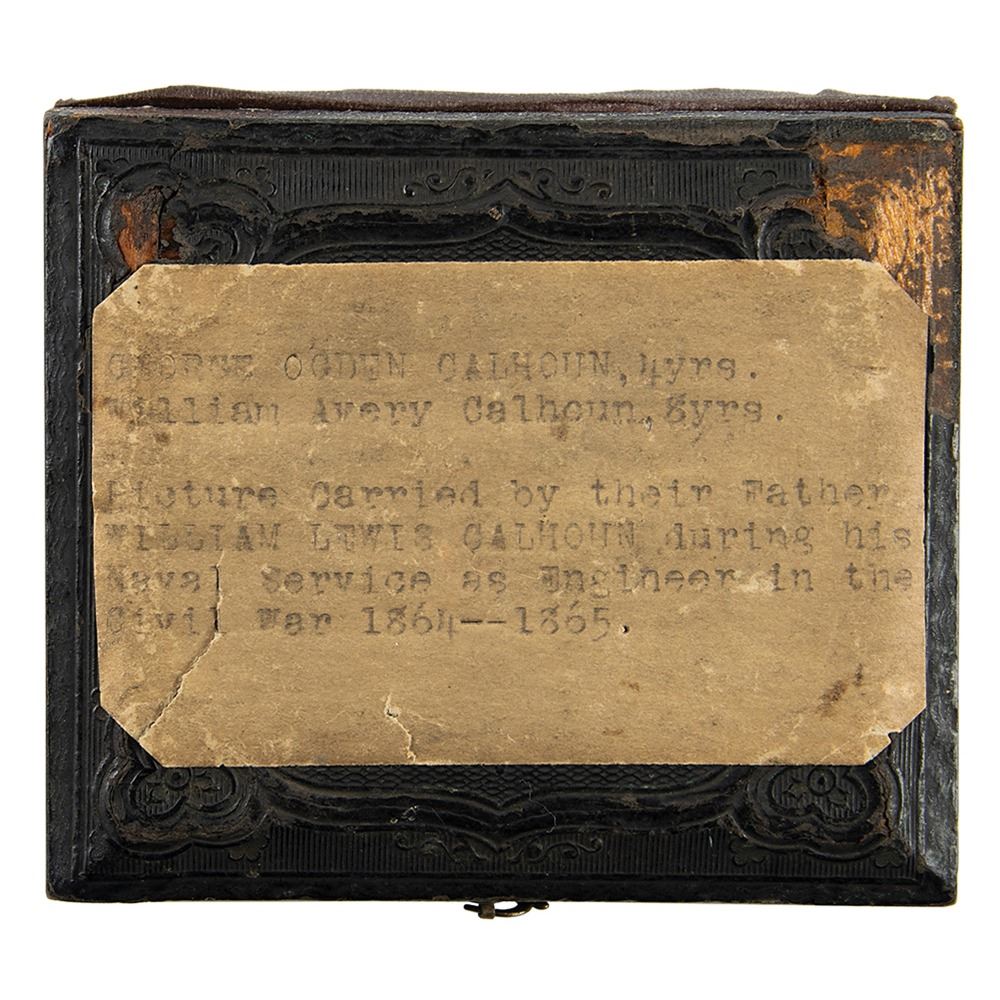 GEORGE OGDEN CALHOUN,4yrs.
William Avery Calhoun,8yrs.
Picture Carried by their Father
WILLIAM LEWIS CALHOUN during his
Naval Service as Engineer in the
Civil War 1864--1865.